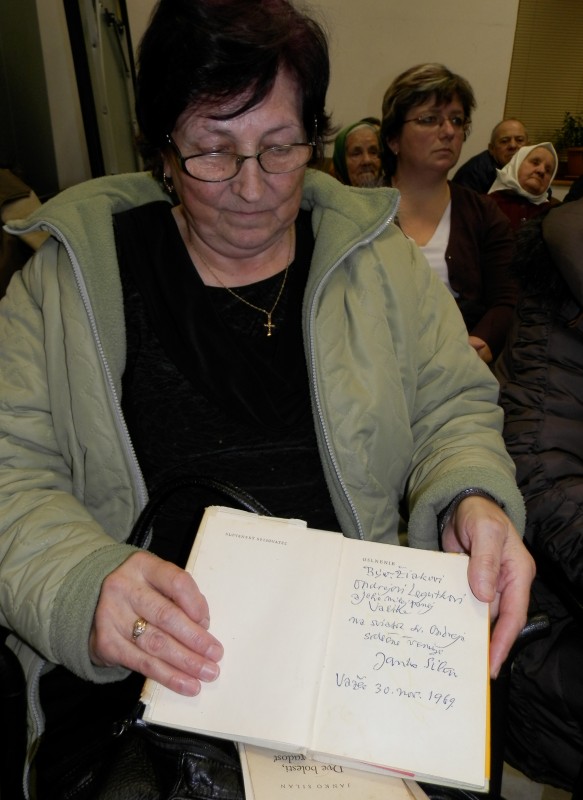 SLOVENSKÝ SPISOVATEĽ
ÚSLNEČNIE
Žiakovi
Ondrejovi Legutkovi
a jeho milej panej
na sviatok sv. Ondreja
srdečne venuje
Janko Silan
Važec 30. nov. 1969
Dve bolesti,
radosť
JANKO SILAN